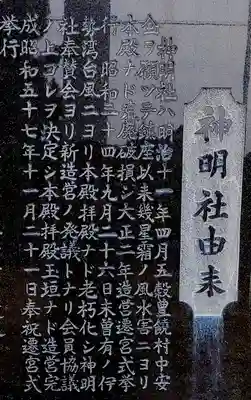 神明社由来
神明社ハ明治十一年四月五穀豊饒村中安
全ヲ願ッテ鎮座以来幾星霜ノ風水害ニヨリ
本殿ナド廃廃破損シ大正二年造営遷宮式挙
行 昭和三十四年九月二十六日未曽有ノ伊
勢湾台風ニヨリ本殿拝殿ナド老朽化シ神明
社奉賛会ヨリ新造営ノ発議トナリ会員協議
ノ上コレヲ決定シ本殿拝殿玉垣ナド造営完
成昭和五十七年十一月二十一日奉祝遷宮式
挙行